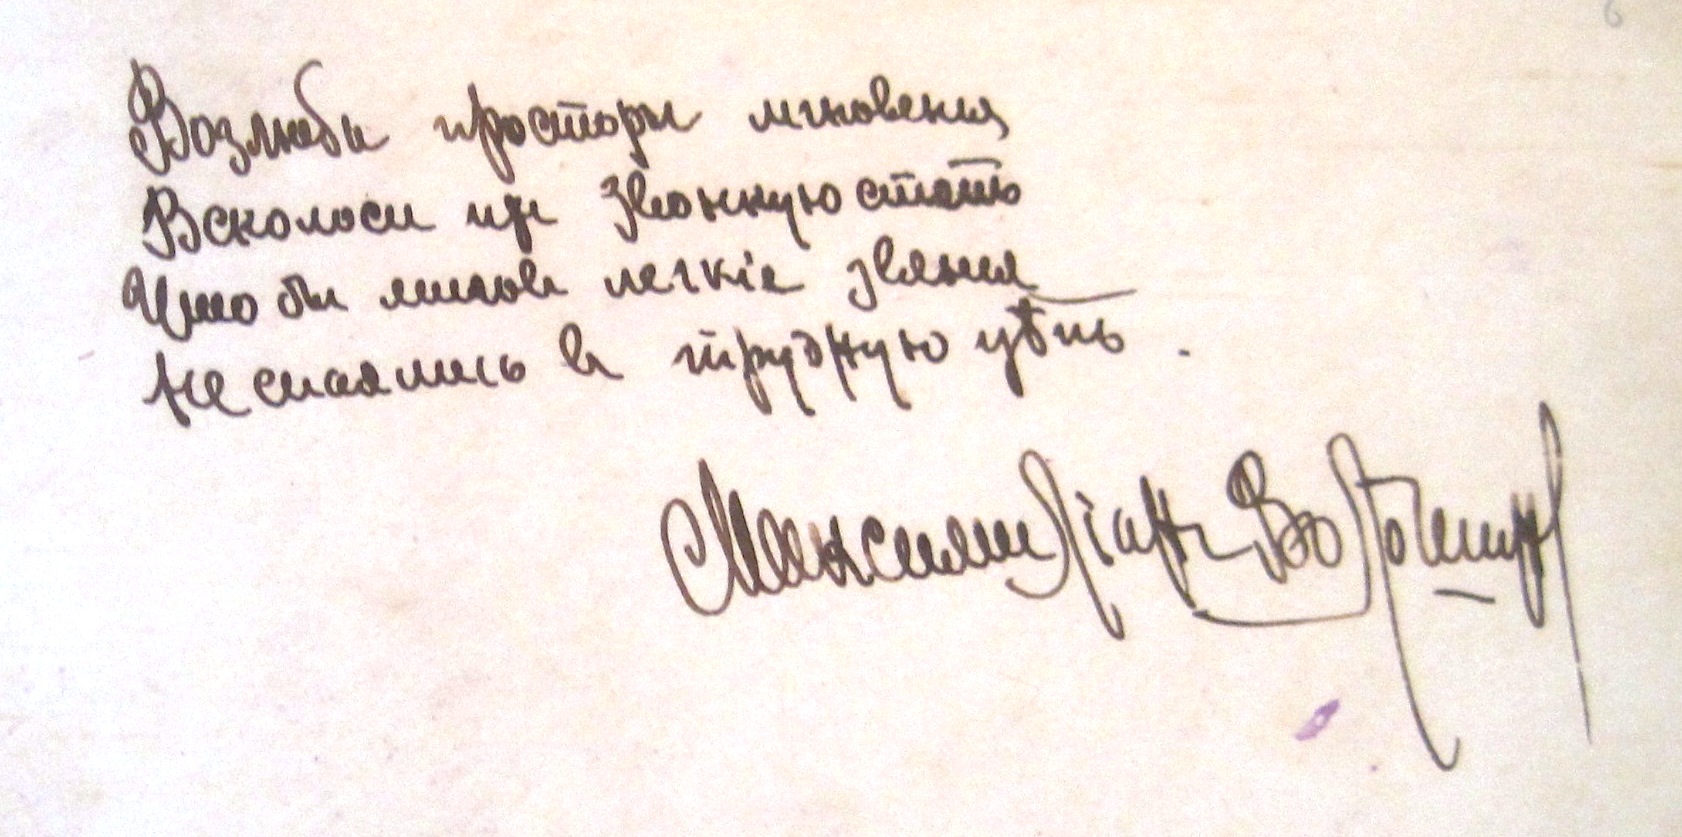 6
Возлюби просторы мгновенья
Всколоси их звонкую степь
Что бы мигов легкіе звенья
Не спаялись в трудную цѣпь .
Максимиліан Волошин